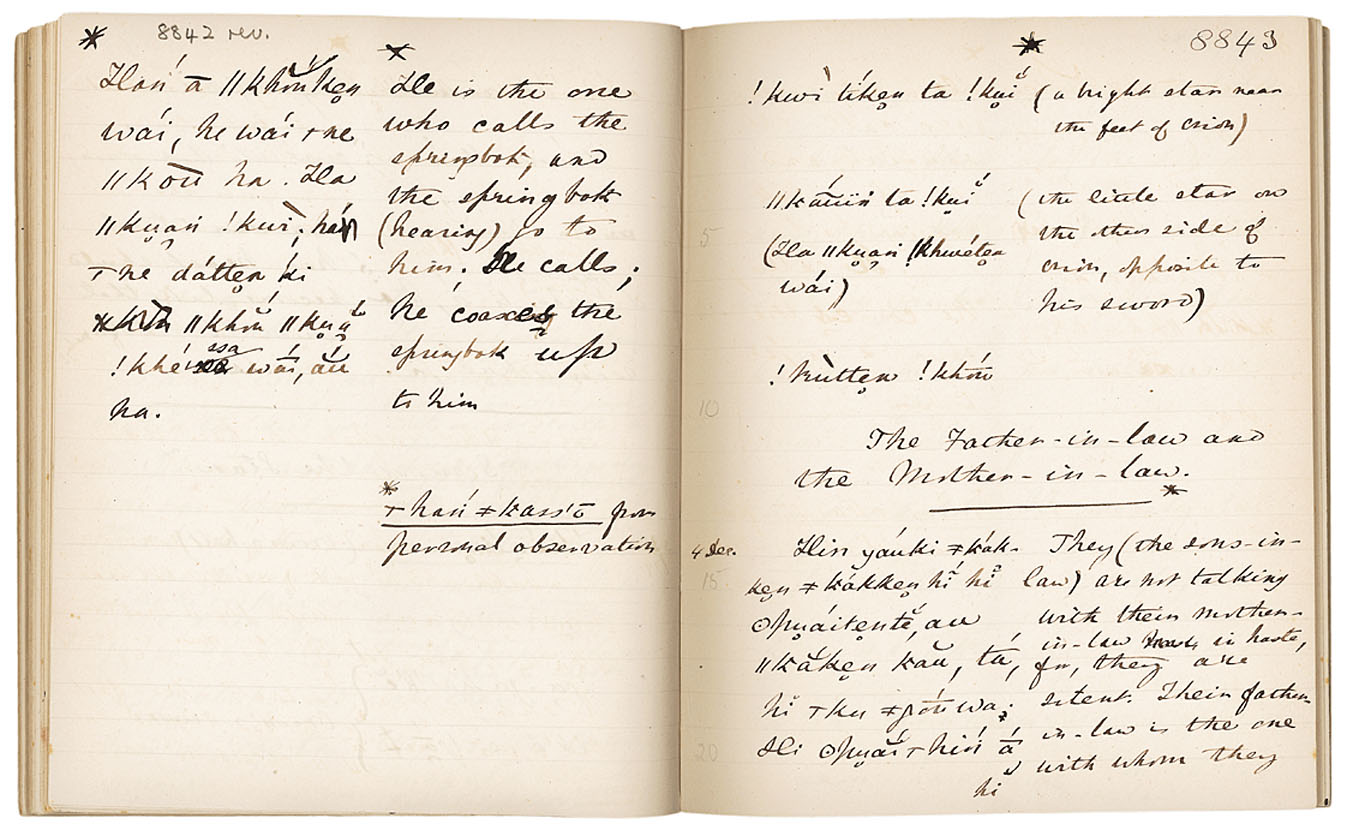 8842 rev.
Haṅ́ ā ǁkhŏ́uken
wái, he wái ǀne
ǁkōu ha. Ha
ǁkuaṅ !kwì; háṅ
ǀne dátten ki
ǁkhŏu
!khé ssa wái, áu
ha.
He is the one
who calls the
springbok, and
the springbok
(hearing) go to
him. He calls;
he coaxes the
springbok up
to him
ǀhaṅ́ ǂkass'ō from
personal observation
8843
!kwì tíken ta !kuí̆ (a bright star near
the feet of Orion)
ta !kuí̆ (the little star on
the other side of
Orion, opposite to
his sword)
(Ha ǁkuaṅ
wái)
!kùtten !khóu
5
10
15
20
The Father-in-law and
the Mother-in-law.
4 Dec.
Hin yáuki ǂkák-
ken ǂkákken hĭ́ hĭ
ʘpuáitentĕ́, au
ǁkắken kău, tá,
hĭ ǀku ǂgṓuwa;
Hi ʘpuắi ǀhiṅ́ ā́
hĭ
They (the sons-in-
law) are not talking
with their mother-
in-law in haste,
for, they are
silent. Their father-
in-law is the one
with whom they